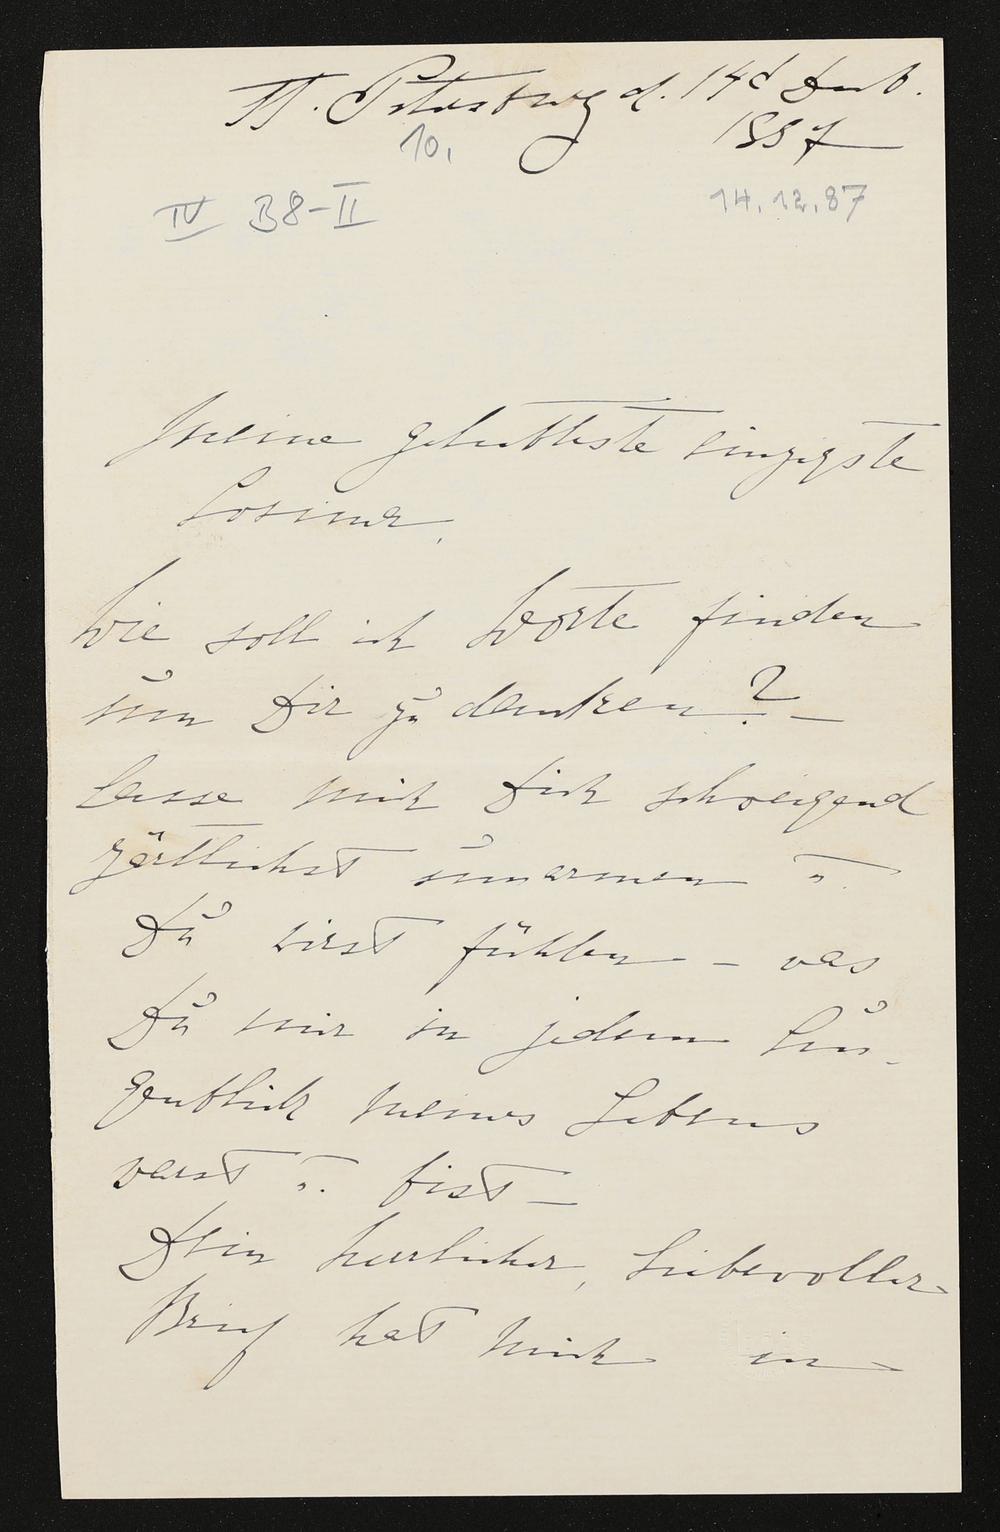 St. Petersburg d. 14t Decb.
1887
10.
IV B8-II
14.12.87
Meine geliebteste einzigste
Cosima,
Wie soll ich Worte finden
um Dir zu danken? –
Lasse mich Dich schweigend
zärtlichst umarmen u.
Du wirst fühlen – was
Du mir in jedem Au-
genblick meines Lebens
warst u. bist –
Dein herrlicher, liebevoller
Brief hat mich in